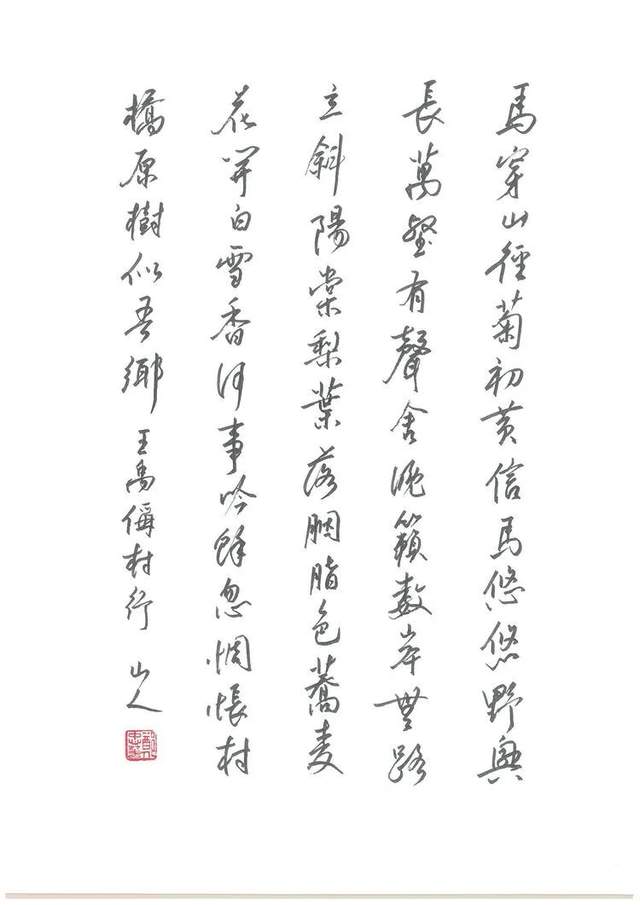 馬穿山徑菊初黃信馬悠悠野興
長萬壑有聲含晚籟數峯無語
立斜陽棠梨葉落胭脂色蕎麥
花開白雪香何事吟餘忽惆悵村
橋原樹似吾鄉 王禹偁村行 山人